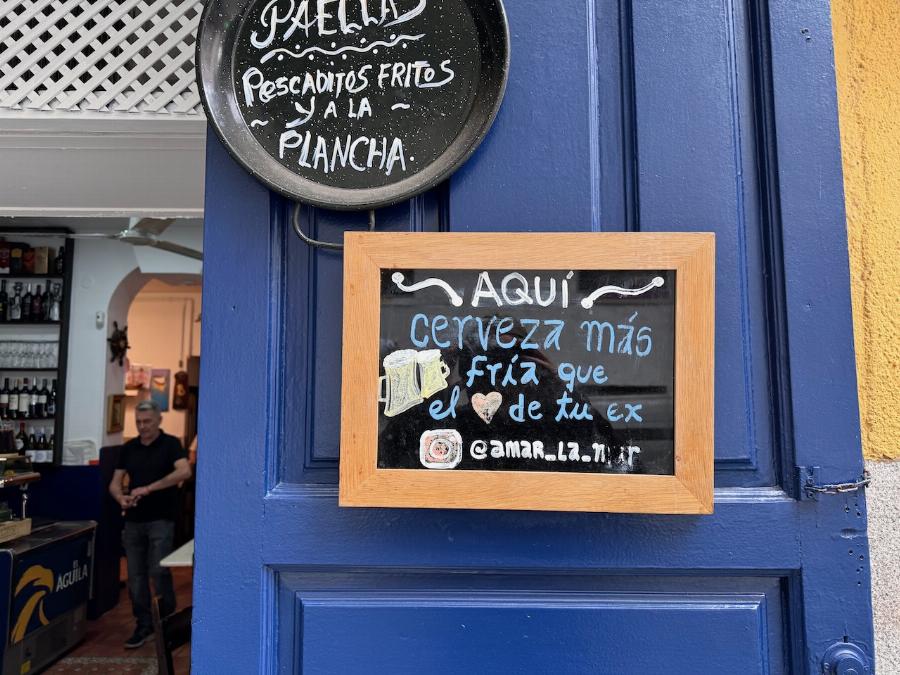 PAELLAS
PESCADITOS FRITOS
Y A LA
PLANCHA.
AQUÍ
cerveza más
fría que
el de tu ex
EL
ÁGUILA